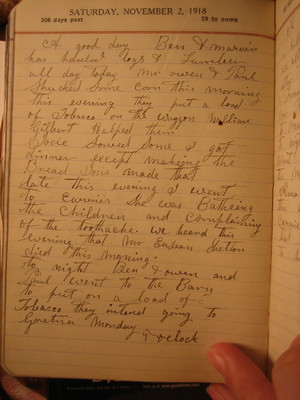 SATURDAY, NOVEMBER 2, 1918
306 days past 59 to come
A good day Ben & marvin
has hauled logs & Lumber
all day today Mr owen & Paul
Shucked Some Corn this morning
this evening they put a load
of Tobacco on the waggon William
Gilbert Helped them
Sowed Some I got
dinner except makeing the
Bread made that
late this evening I went
to She was Batheing
the Children and Complaining
of the toothache. we heard this
evening that Mr Sutton
died this morning.
to night Ben & owen and
Paul went to the Barn
to put on a load of
Tobacco they intend going to
Monday 9 oclock